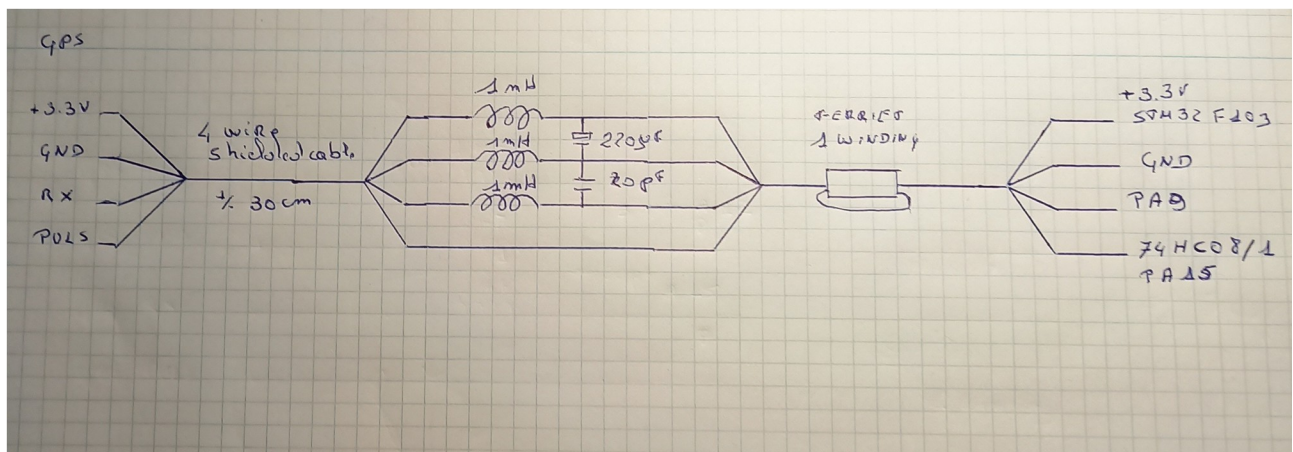 GPS
+3.3V
GND
RX
PULS
4 wire
shielded cable
+/- 30cm
1mH
1mH
1mH
220µF
20pF
FERRIET
1 WINDING
+3.3V
STM32F103
GND
PA9
74HC08/1
PA15